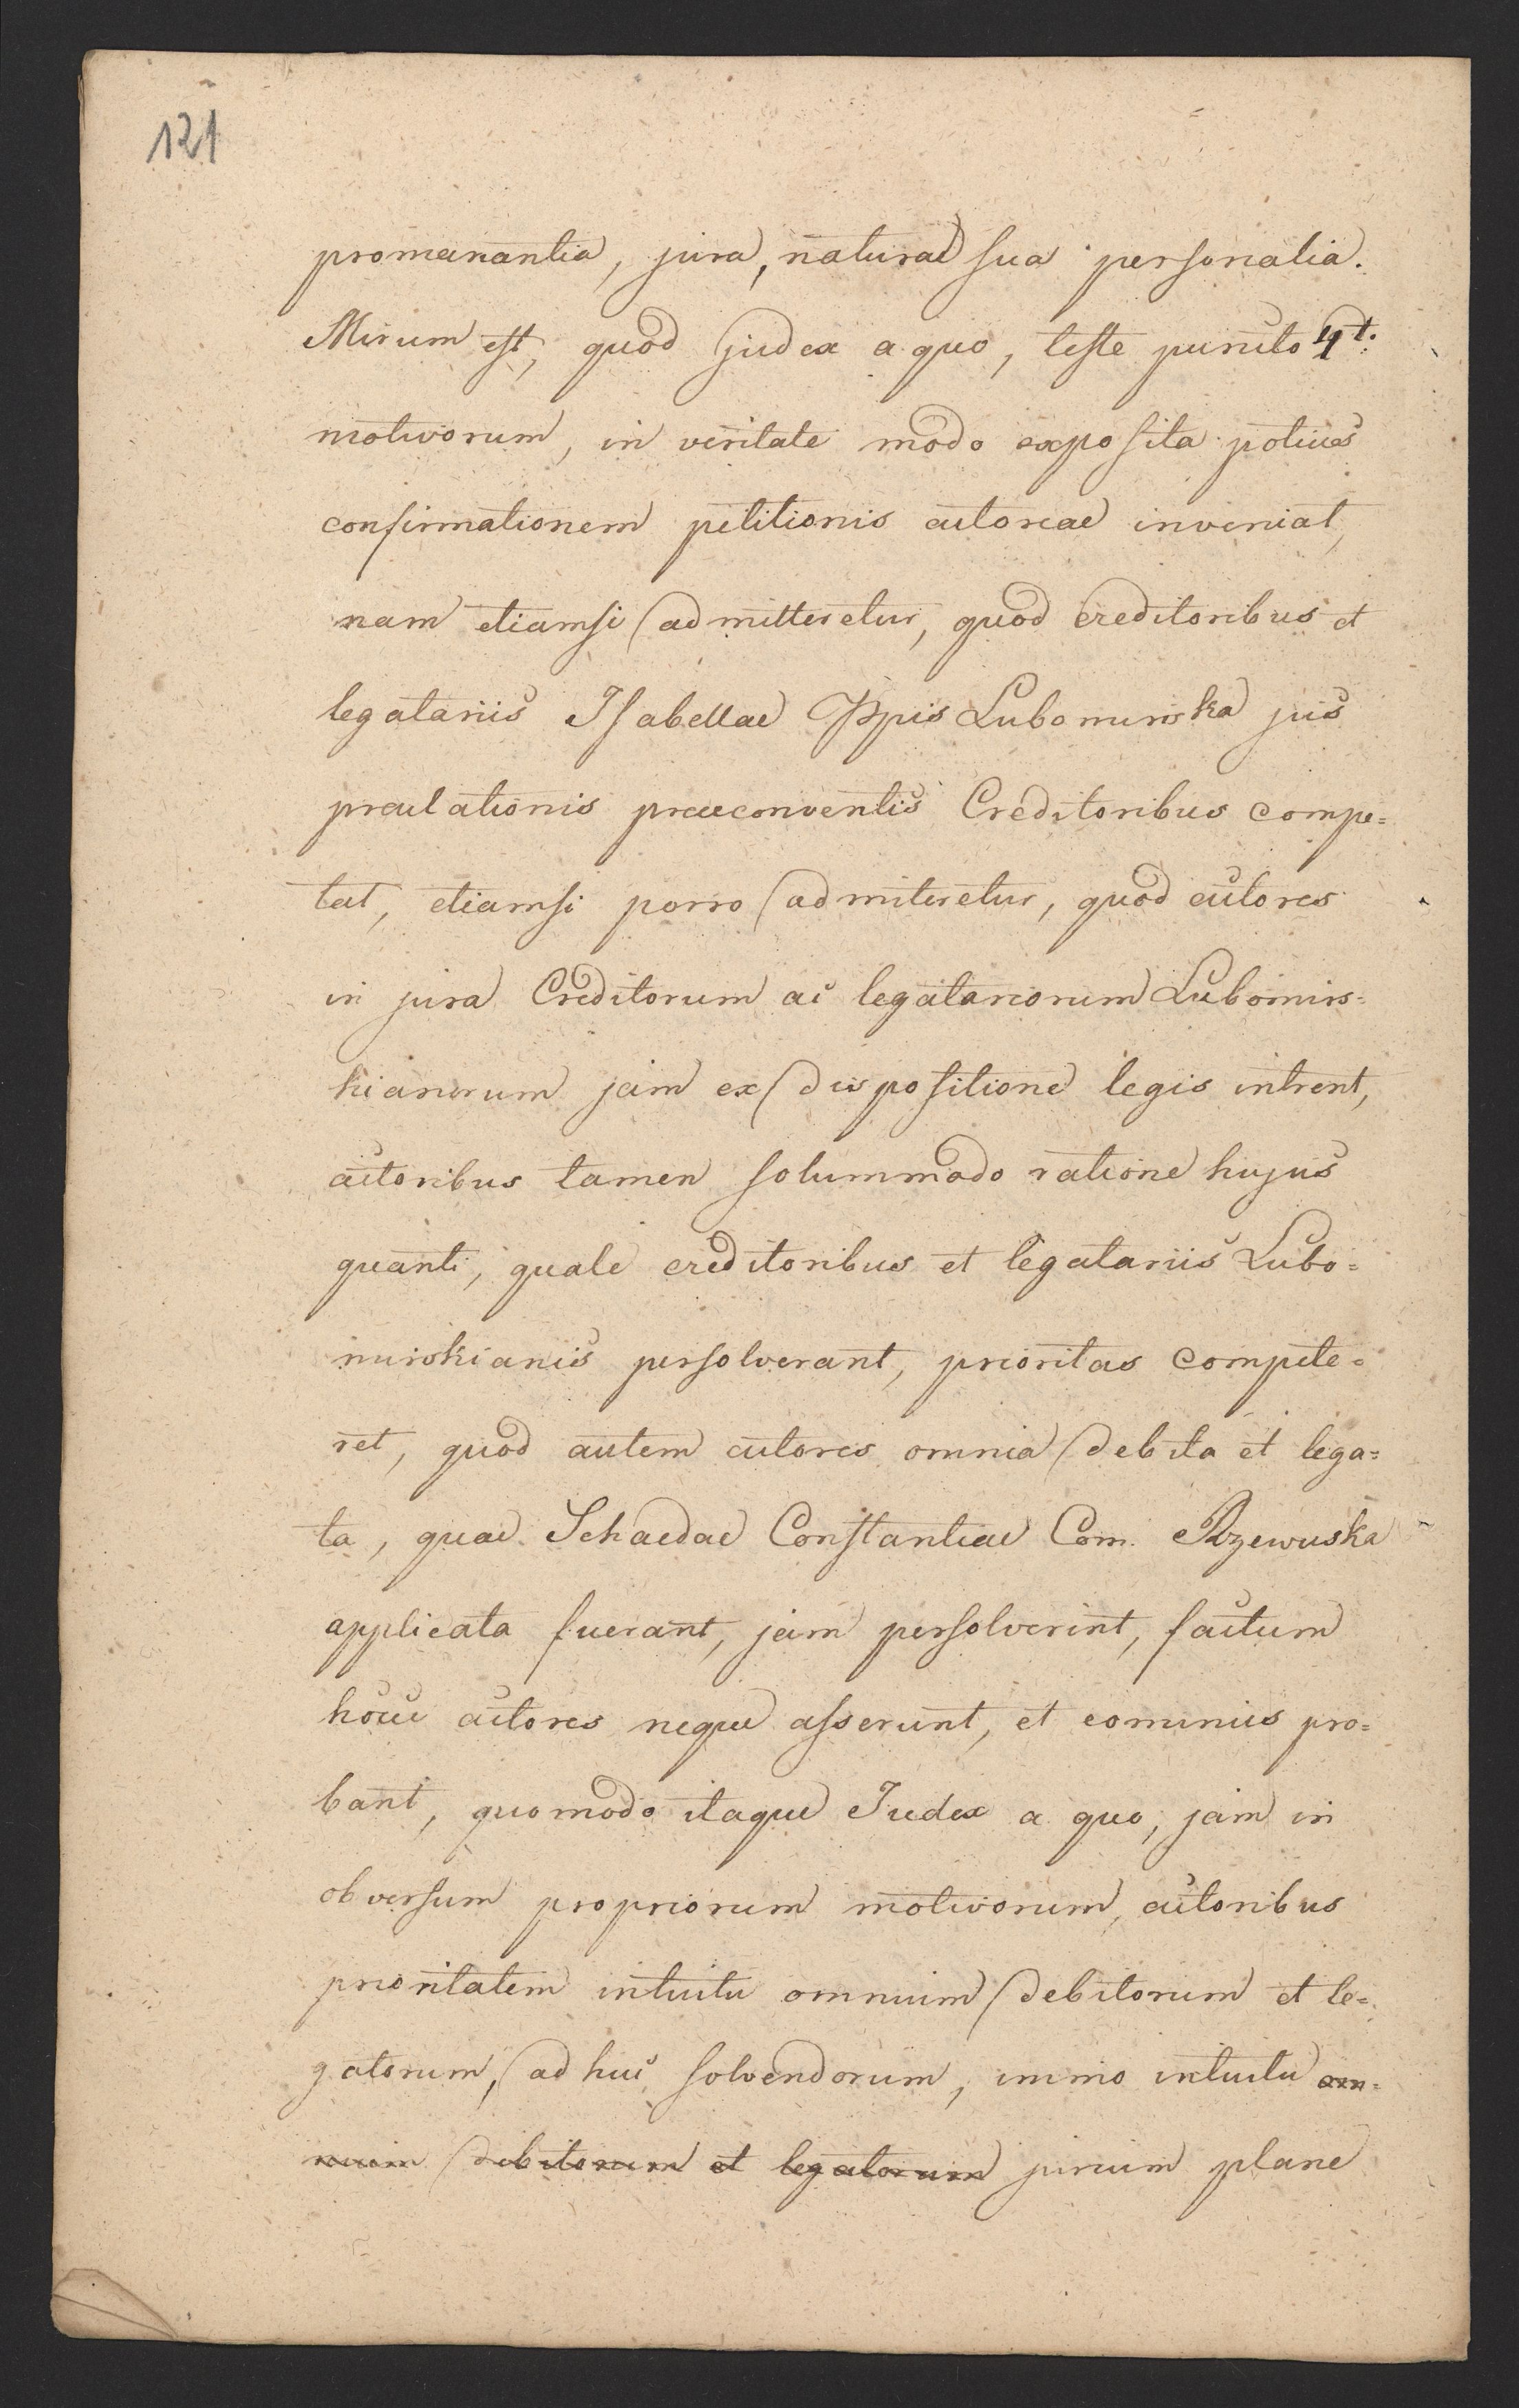 121
promanantia, jura, naturae sua personalia.
Mirum est, quod judex a quo, teste puncto 4t.
motivorum, in veritate modo exposita potius
confirmationem petitionis actoreae inveniat,
nam etiamsi admitteretur, quod creditoribus et
legatariis Isabellae Ppis Lubomirska jus
praelationis praeconventis Creditoribus compe=
tat, etiamsi porro admiteretur, quod actores
in jura Creditorum ac legatariorum Lubomirs=
kianorum jam ex dispositione legis intrent,
actoribus tamen solummodo ratione hujus
quanti, quale creditoribus et legatariis Lubo=
mirskianis persolverant, prioritas compete=
ret, quod autem actores omnia debita et lega=
ta, quae Schaedae Constantiae Com. Rzewuska
applicata fuerant, jam persolverint, factum
hocce actores neque asserunt, et eominus pro=
bant, quomodo itaque Judex a quo, jam in
obversum propriorum motivorum, actoribus
prioritatem intuitu omnium debitorum et le=
gatorum, adhuc solvendorum, immo intuitu om=
nium debitorum et legatorum jurium plane